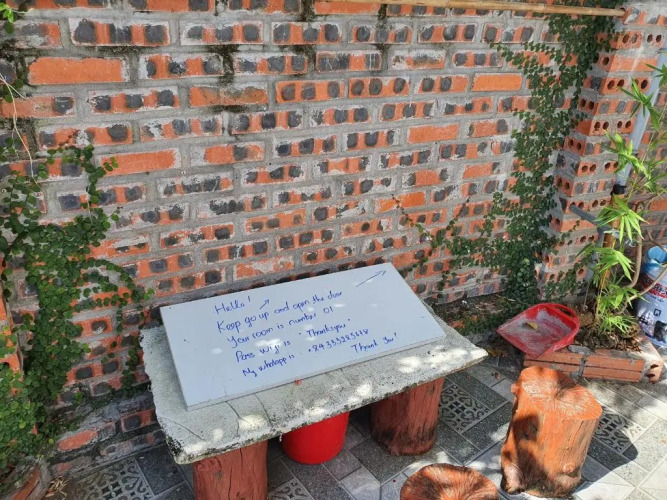 Hello!
Keep go up and open the door
Your room is number 01
Pass wifi is "Thankyou"
My whatsapp is: +84333285668
Thank You!